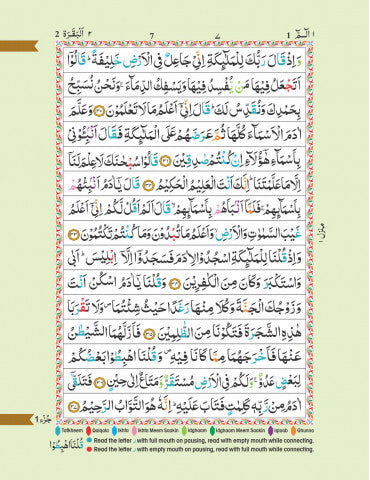 البقرة ٢ 2 7 ٧ 1 الٓمّٓ ١
وَاِذْ قَالَ رَبُّكَ لِلْمَلٰٓئِكَةِ اِنِّىْ جَاعِلٌ فِى الْاَرْضِ خَلِيْفَةً ؕ قَالُوْٓا
اَتَجْعَلُ فِيْهَا مَنْ يُّفْسِدُ فِيْهَا وَيَسْفِكُ الدِّمَآءَ ۚ وَنَحْنُ نُسَبِّحُ
بِحَمْدِكَ وَنُقَدِّسُ لَكَ ؕ قَالَ اِنِّىْٓ اَعْلَمُ مَا لَا تَعْلَمُوْنَ ﴿۳۰﴾ وَعَلَّمَ
اٰدَمَ الْاَسْمَآءَ كُلَّهَا ثُمَّ عَرَضَهُمْ عَلَى الْمَلٰٓئِكَةِ فَقَالَ اَنْۢبِـُٔوْنِىْ
بِاَسْمَآءِ هٰٓؤُلَآءِ اِنْ كُنْتُمْ صٰدِقِيْنَ ﴿۳۱﴾ قَالُوْا سُبْحٰنَكَ لَا عِلْمَ لَنَآ
اِلَّا مَا عَلَّمْتَنَا ؕ اِنَّكَ اَنْتَ الْعَلِيْمُ الْحَكِيْمُ ﴿۳۲﴾ قَالَ يٰٓاٰدَمُ اَنْۢبِئْهُمْ
بِاَسْمَآئِهِمْ ۚ فَلَمَّآ اَنْۢبَاَهُمْ بِاَسْمَآئِهِمْ ۙ قَالَ اَلَمْ اَقُلْ لَّكُمْ اِنِّىْٓ اَعْلَمُ
غَيْبَ السَّمٰوٰتِ وَالْاَرْضِ ۙ وَاَعْلَمُ مَا تُبْدُوْنَ وَمَا كُنْتُمْ تَكْتُمُوْنَ ﴿۳۳﴾
وَاِذْ قُلْنَا لِلْمَلٰٓئِكَةِ اسْجُدُوْا لِاٰدَمَ فَسَجَدُوْٓا اِلَّآ اِبْلِيْسَ ؕ اَبٰى
وَاسْتَكْبَرَ وَكَانَ مِنَ الْكٰفِرِيْنَ ﴿۳۴﴾ وَقُلْنَا يٰٓاٰدَمُ اسْكُنْ اَنْتَ
وَزَوْجُكَ الْجَنَّةَ وَكُلَا مِنْهَا رَغَدًا حَيْثُ شِئْتُمَا ۪ وَلَا تَقْرَبَا
هٰذِهِ الشَّجَرَةَ فَتَكُوْنَا مِنَ الظّٰلِمِيْنَ ﴿۳۵﴾ فَاَزَلَّهُمَا الشَّيْطٰنُ
عَنْهَا فَاَخْرَجَهُمَا مِمَّا كَانَا فِيْهِ ۪ وَقُلْنَا اهْبِطُوْا بَعْضُكُمْ
لِبَعْضٍ عَدُوٌّ ۚ وَلَكُمْ فِى الْاَرْضِ مُسْتَقَرٌّ وَّمَتَاعٌ اِلٰى حِيْنٍ ﴿۳۶﴾ فَتَلَقّٰٓى
اٰدَمُ مِنْ رَّبِّهٖ كَلِمٰتٍ فَتَابَ عَلَيْهِ ؕ اِنَّهٗ هُوَ التَّوَّابُ الرَّحِيْمُ ﴿۳۷﴾
منزل ١
جزء 1
Tafkheem Qalqala Ikhfa Ikhfa Meem Saakin Idghaam Idghaam Meem Saakin Iqlaab Ghunna
Read the letter ر with full mouth on pausing, read with empty mouth while connecting.
Read the letter ر with empty mouth on pausing, read with full mouth while connecting.
قُلْنَا اهْبِطُوْا